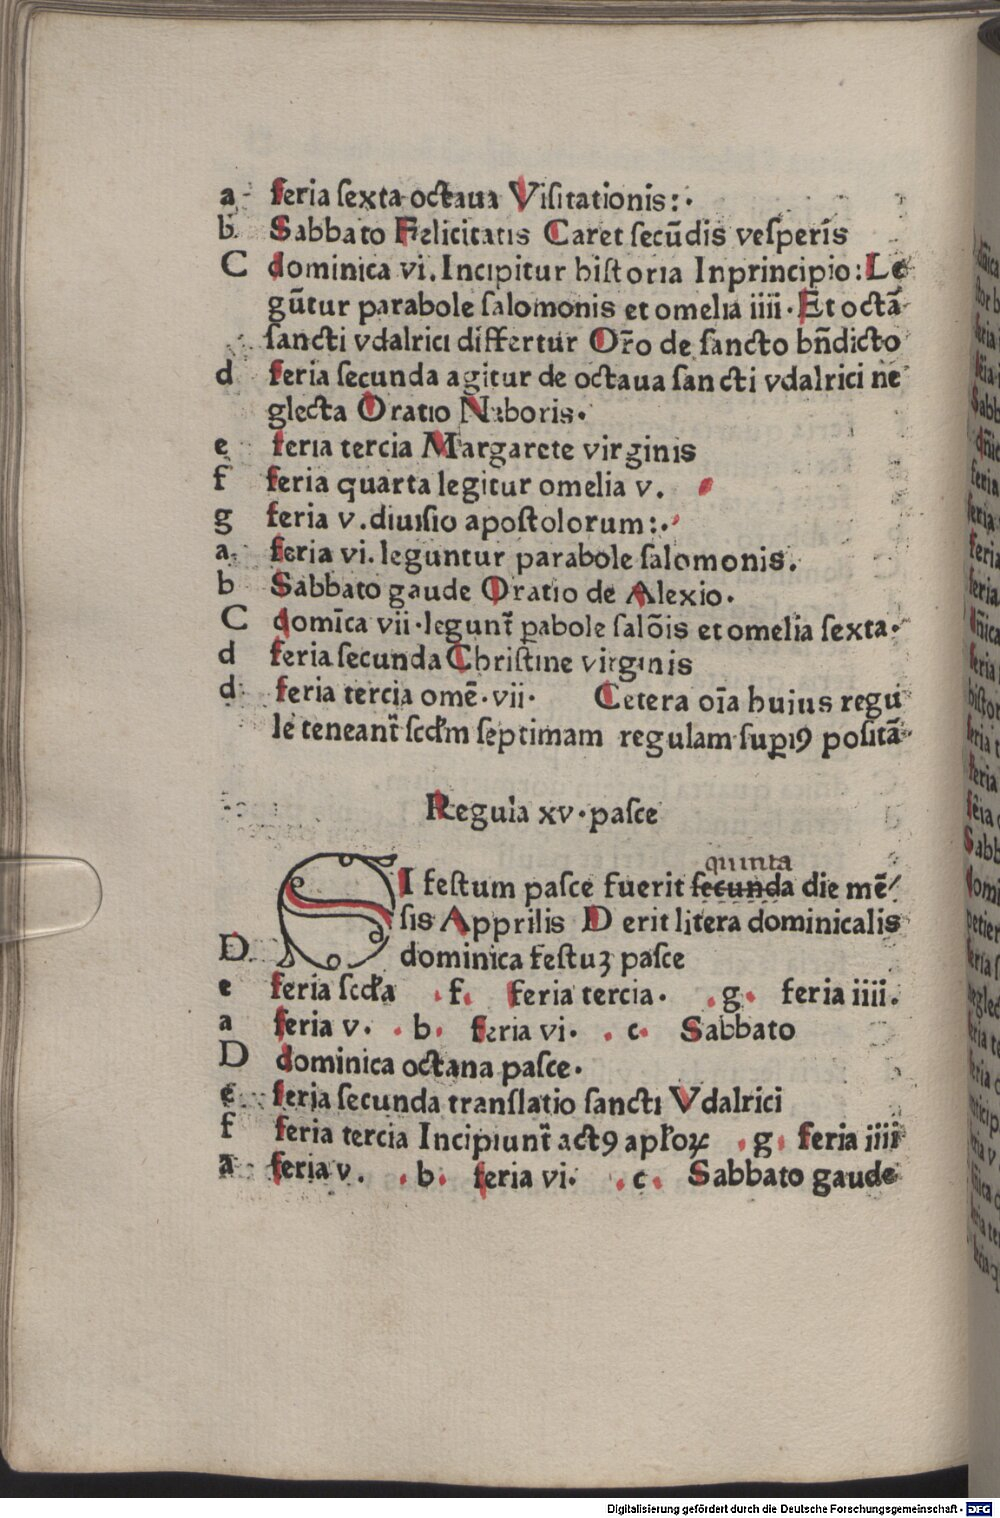 a feria ſexta octaua Viſitationis:·
b Sabbato Felicitatis Caret ſecūdis veſperis
C dominica vi. Incipitur hiſtoria Inprincipio: Le
gūtur parabole ſalomonis et omelia iiii· Et octā
ſancti vdalrici differtur Or̄o de ſancto bn̄dicto
d feria ſecunda agitur de octaua ſancti vdalrici ne
glecta Oratio Naboris·
e feria tercia Margarete virginis
f feria quarta legitur omelia v.
g feria v. diuiſio apoſtolorum:·
a feria vi. leguntur parabole ſalomonis.
b Sabbato gaude Oratio de Alexio·
C domīca vii·legunt᷑ ꝑabole ſalōis et omelia ſexta·
d feria ſecunda Chriſtine virginis
d feria tercia omē·vii· Cetera oīa huius regu
le teneant᷑ ſccd̄m ſeptimam regulam ſuꝑiꝰ poſitā·
Regula xv·paſce
quinta
SI feſtum paſce fuerit ſecunda die mē
ſis Apprilis D erit litera dominicalis
D. dominica feſtuꝫ paſce
e feria ſccd̄a . f. feria tercia· . g. feria iiii.
a feria v. . b. feria vi. . c. Sabbato
D dominica octana paſce·
e feria ſecunda tranſlatio ſancti Vdalrici
f feria tercia Incipiunt᷑ actꝰ apl̄oꝝ . g. feria iiii
a feria v. . b. feria vi. . c. Sabbato gaude
Digitalisierung gefördert durch die Deutsche Forschungsgemeinschaft - DFG